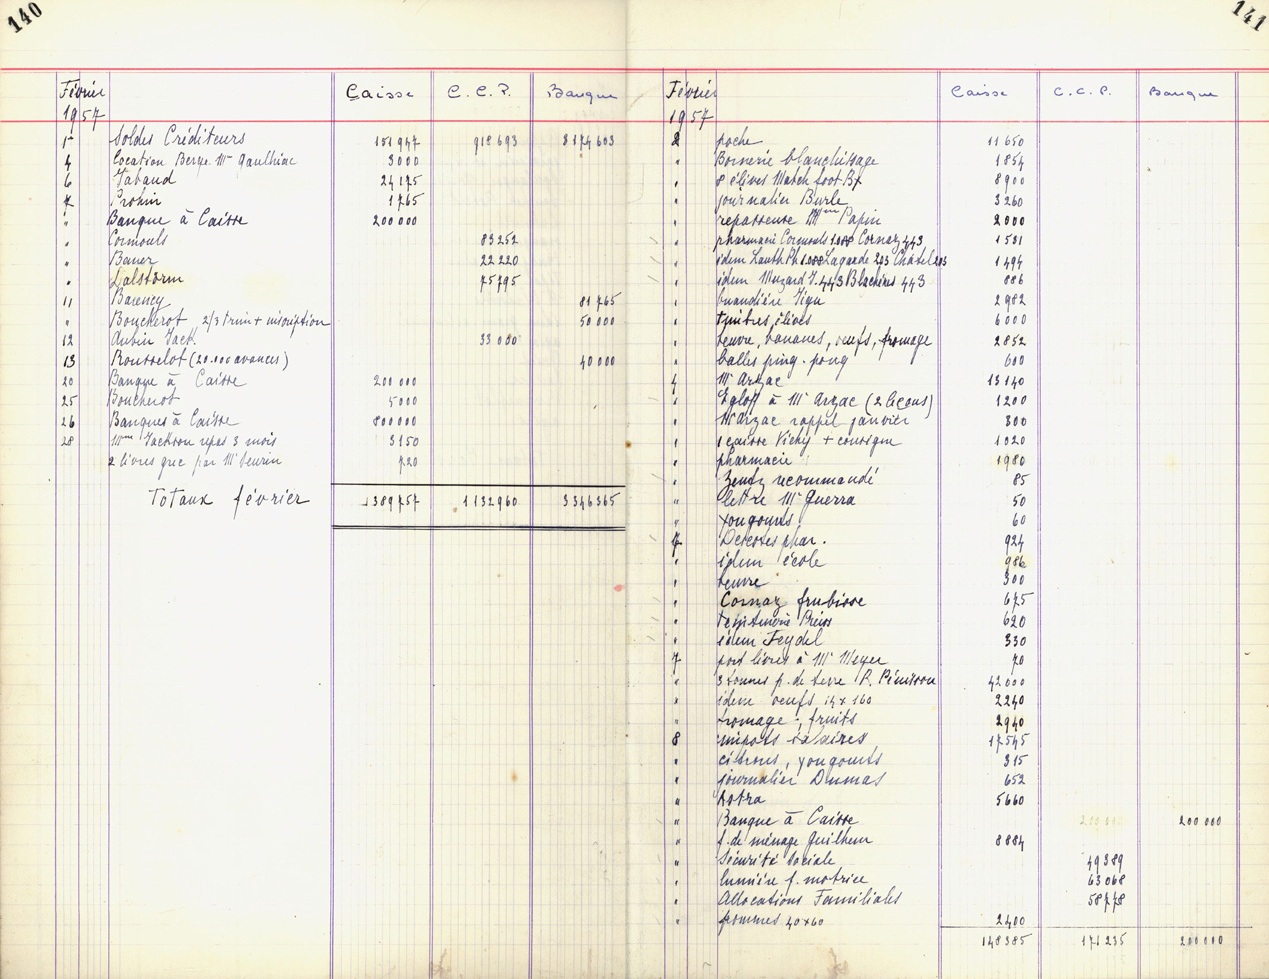 140
Février Caisse C.C.P. Banque
1957
1er Soldes Créditeurs 151 947 918 693 3174603
4 Location Berge Mme Gaulhiac 3000
6 Vabaud 24 175
7 Prohin 1765
" Banque à Caisse 200 000
" Cormouls 83 252
" Bauer 22 220
" Dalstörm 75 795
11 Bareney 81 765
" Boucherot 2/3 trim + inscription 50 000
12 Aubin Jack. 33 000
13 Rousselot (20.000 avances) 40 000
20 Banque à Caisse 200 000
25 Boucherot 5000
26 Banques à Caisse 800000
28 Mme Jackson repas 3 mois 3150
2 livres grec par Mr 720
Totaux février 1389757 1132960 3346365
141
Février Caisse C.C.P. Banque
1957
2 poche 11 650
" Bonnerie blanchissage 1854
" 8 élèves Match foot Bx 8900
" journalier Burle 3260
" repasseuse Mme Papin 2000
" pharmacie Cormouls Cornaz 443 1581
" idem Lauth Ph 1.088 Lagarde 203 Châtel 203 1494
" idem Muzard J. 443 Blachères 443 886
" buandière Vign 2982
" timbres élèves 6000
" beurre, bananes, oeufs, fromage 2852
" balles ping-pong 600
4 Mr Arzac 13140
" Egloff à Mr Arzac (2 leçons) 1200
" Mr Arzac rappel janvier 300
" 1 caisse Vichy + consigne 1020
" pharmacie 1980
" Zentz recommandé 85
" lettre Mr Guerra 50
" yougourts 60
" Descotes phar. 924
" idem école 986
" beurre 300
" Cornaz frubiose 675
" teinturerie Briois 620
" idem Feydel 330
7 port livres à Mr Meyer 70
" 3 tonnes p. de terre P. Pénisson 42000
" idem oeufs 14 x 160 2240
" fromage, fruits 2940
8 impots salaires 17545
" citrons, yougourts 315
" journalier Dumas 652
" Astra 5660
" Banque à Caisse 200 000 200 000
" f. de ménage Guilhem 8884
" Sécurité Sociale 49389
" lumière f. motrice 63068
" Allocations Familiales 58778
" pommes 40 x 60 2400
148385 171235 200000